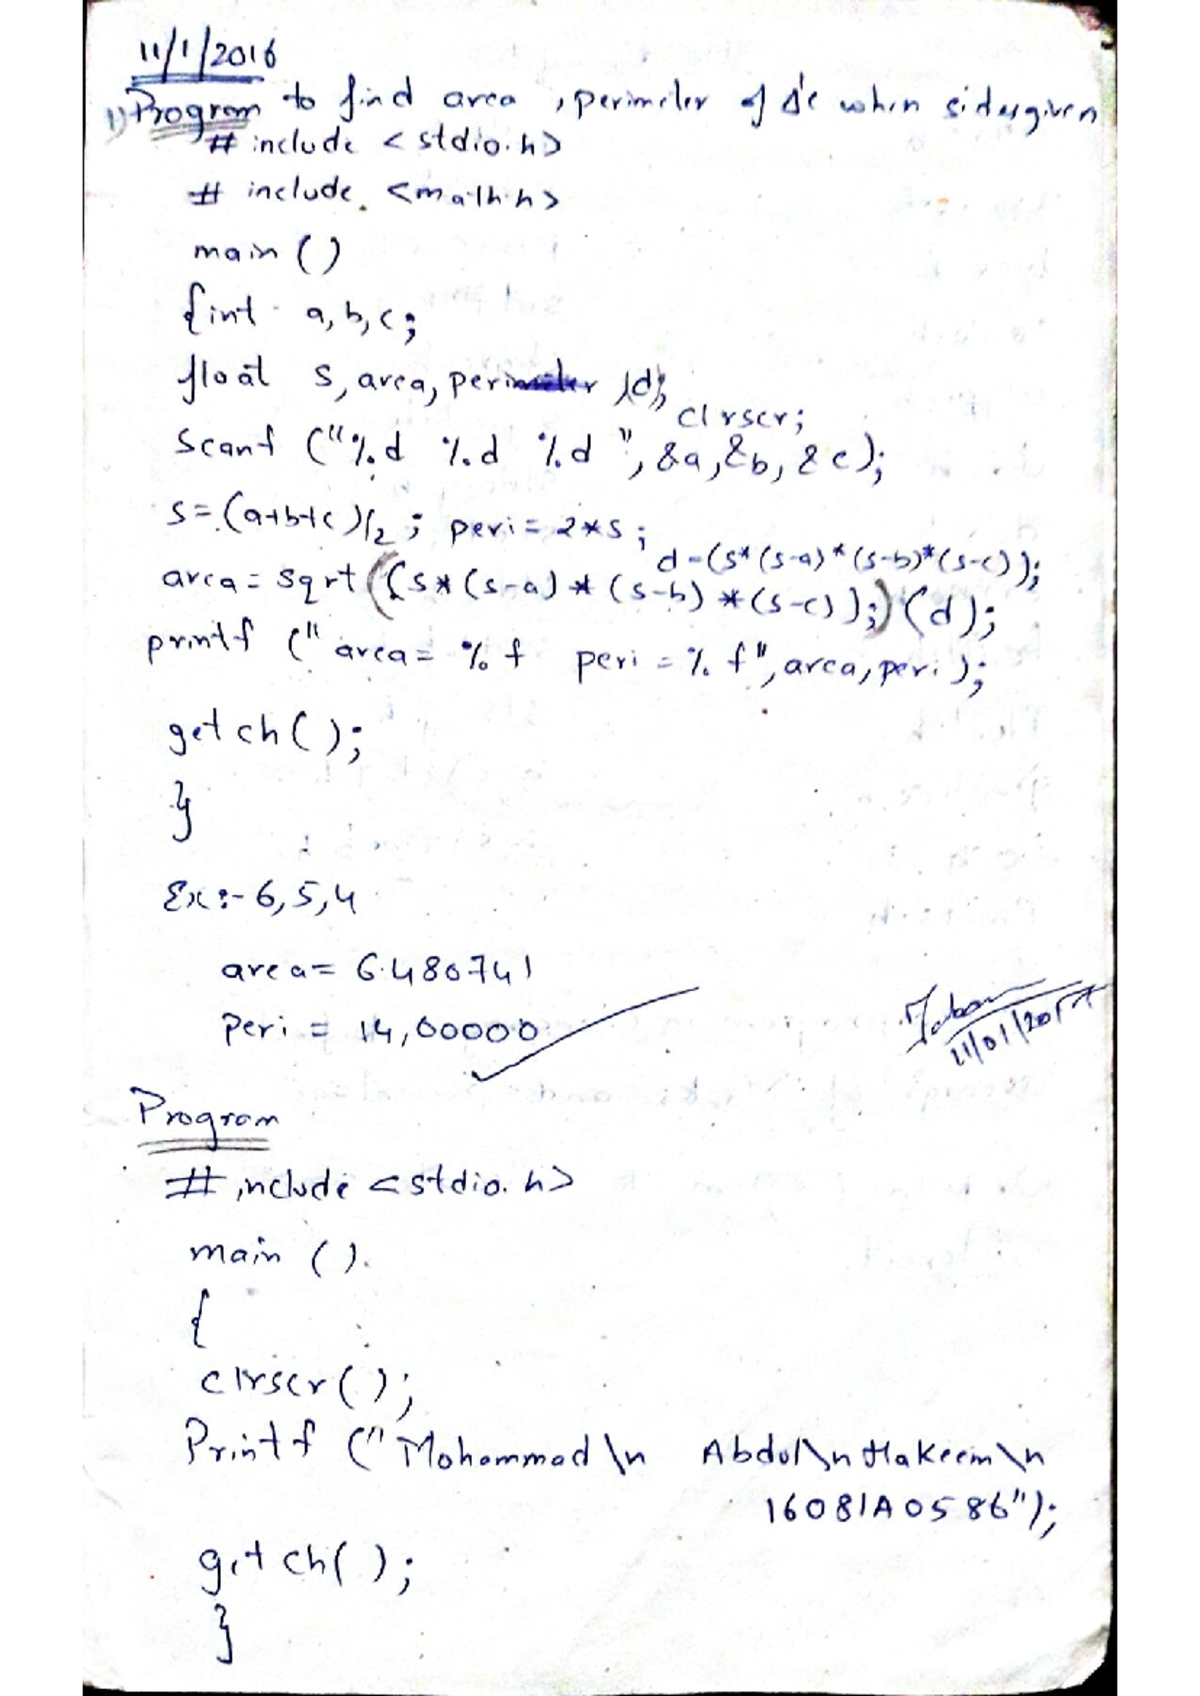 11/1/2016
1) Program to find area , perimeter of Δ'e when sides given
# include < stdio.h>
# include <math.h>
main ()
{int a, b, c;
float s, area, peri ,d;
clrscr;
scanf ("%d %d %d", &a, &b, &c);
s=(a+b+c)/2; peri = 2*s;
d=(s*(s-a)*(s-b)*(s-c));
area = sqrt ((s*(s-a)*(s-b)*(s-c));) (d);
printf ("area = %f peri = %f", area, peri);
getch();
}
Ex:- 6,5,4
area= 6.480741
peri = 14,00000
11/01/2017
Program
# include <stdio.h>
main ().
{
clrscr();
Printf ("Mohammad \n Abdul\n Hakeem \n
16081A0586");
getch();
}